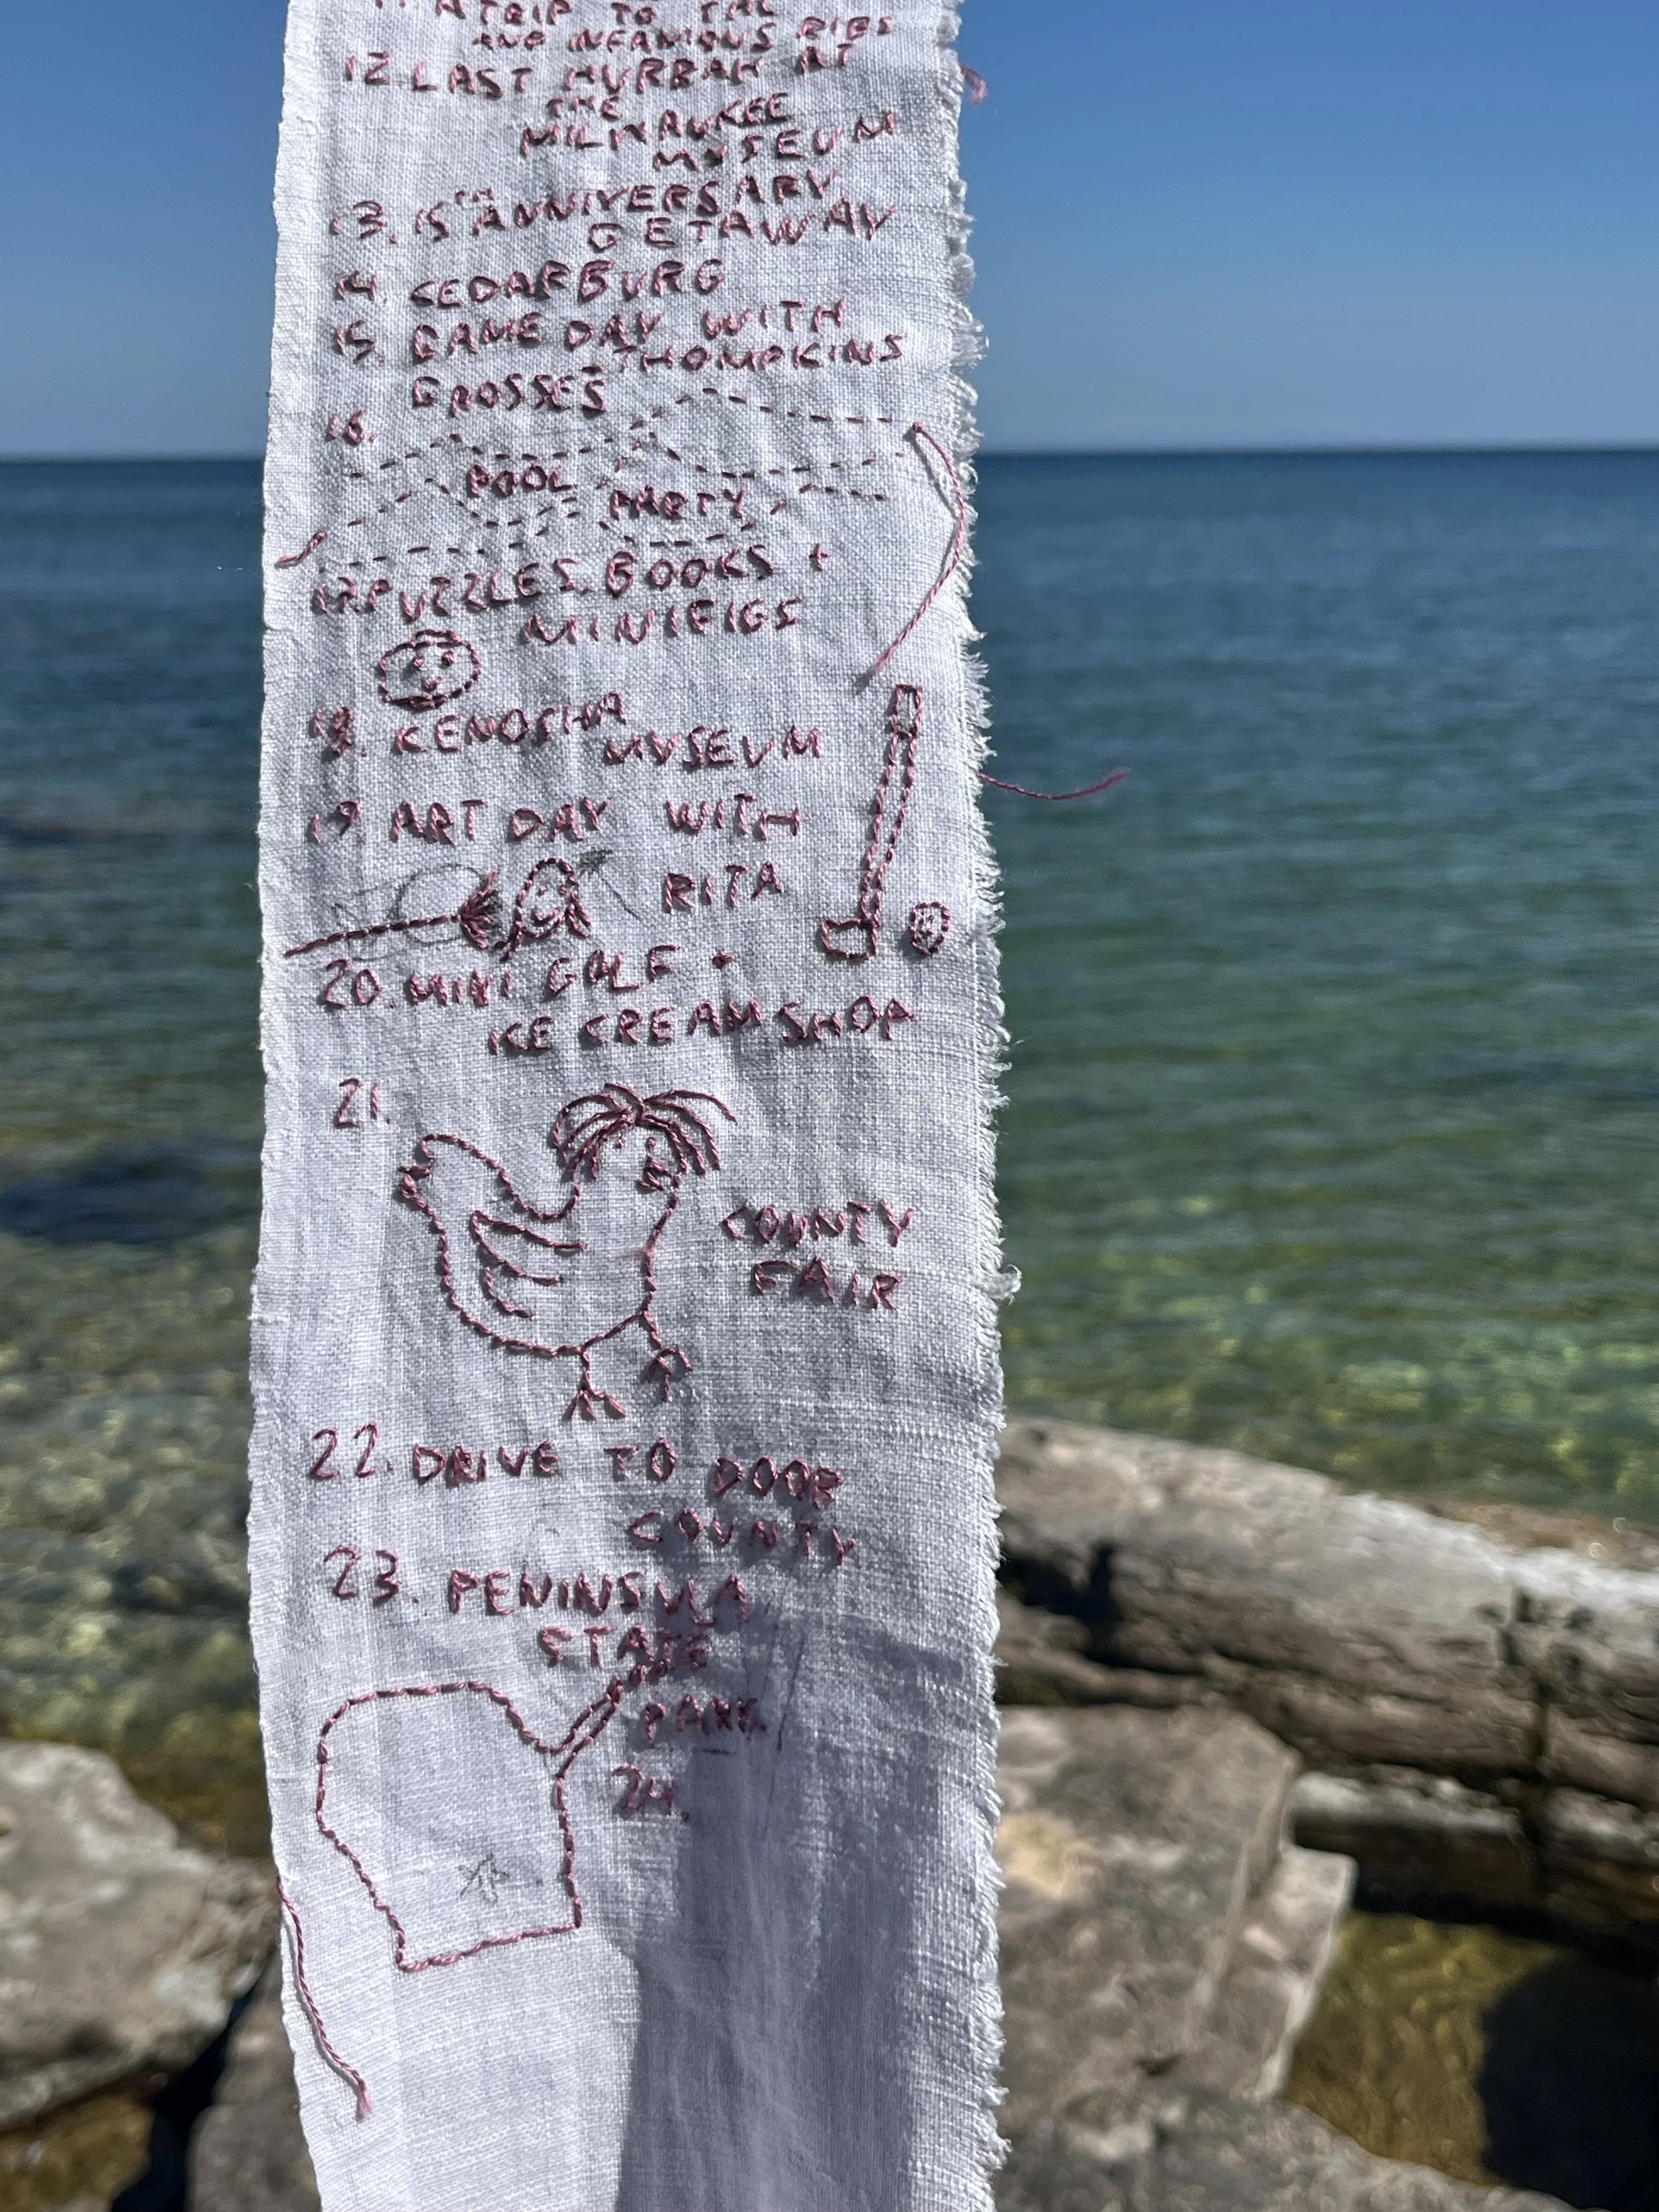 11. A TRIP TO THE
AND INFAMOUS RIBS
12. LAST HURRAH AT
THE
MILWAUKEE
MUSEUM
13. 15TH ANNIVERSARY
GETAWAY
14. CEDARBURG
15. GAME DAY WITH
THOMPKINS
GROSSES
16.
POOL
PARTY
17. PUZZLES, BOOKS +
MINIFIGS
18. KENOSHA
MUSEUM
19 ART DAY WITH
RITA
20. MINI GOLF +
ICE CREAM SHOP
21.
COUNTY
FAIR
22. DRIVE TO DOOR
COUNTY
23. PENINSULA
STATE
PARK
24.